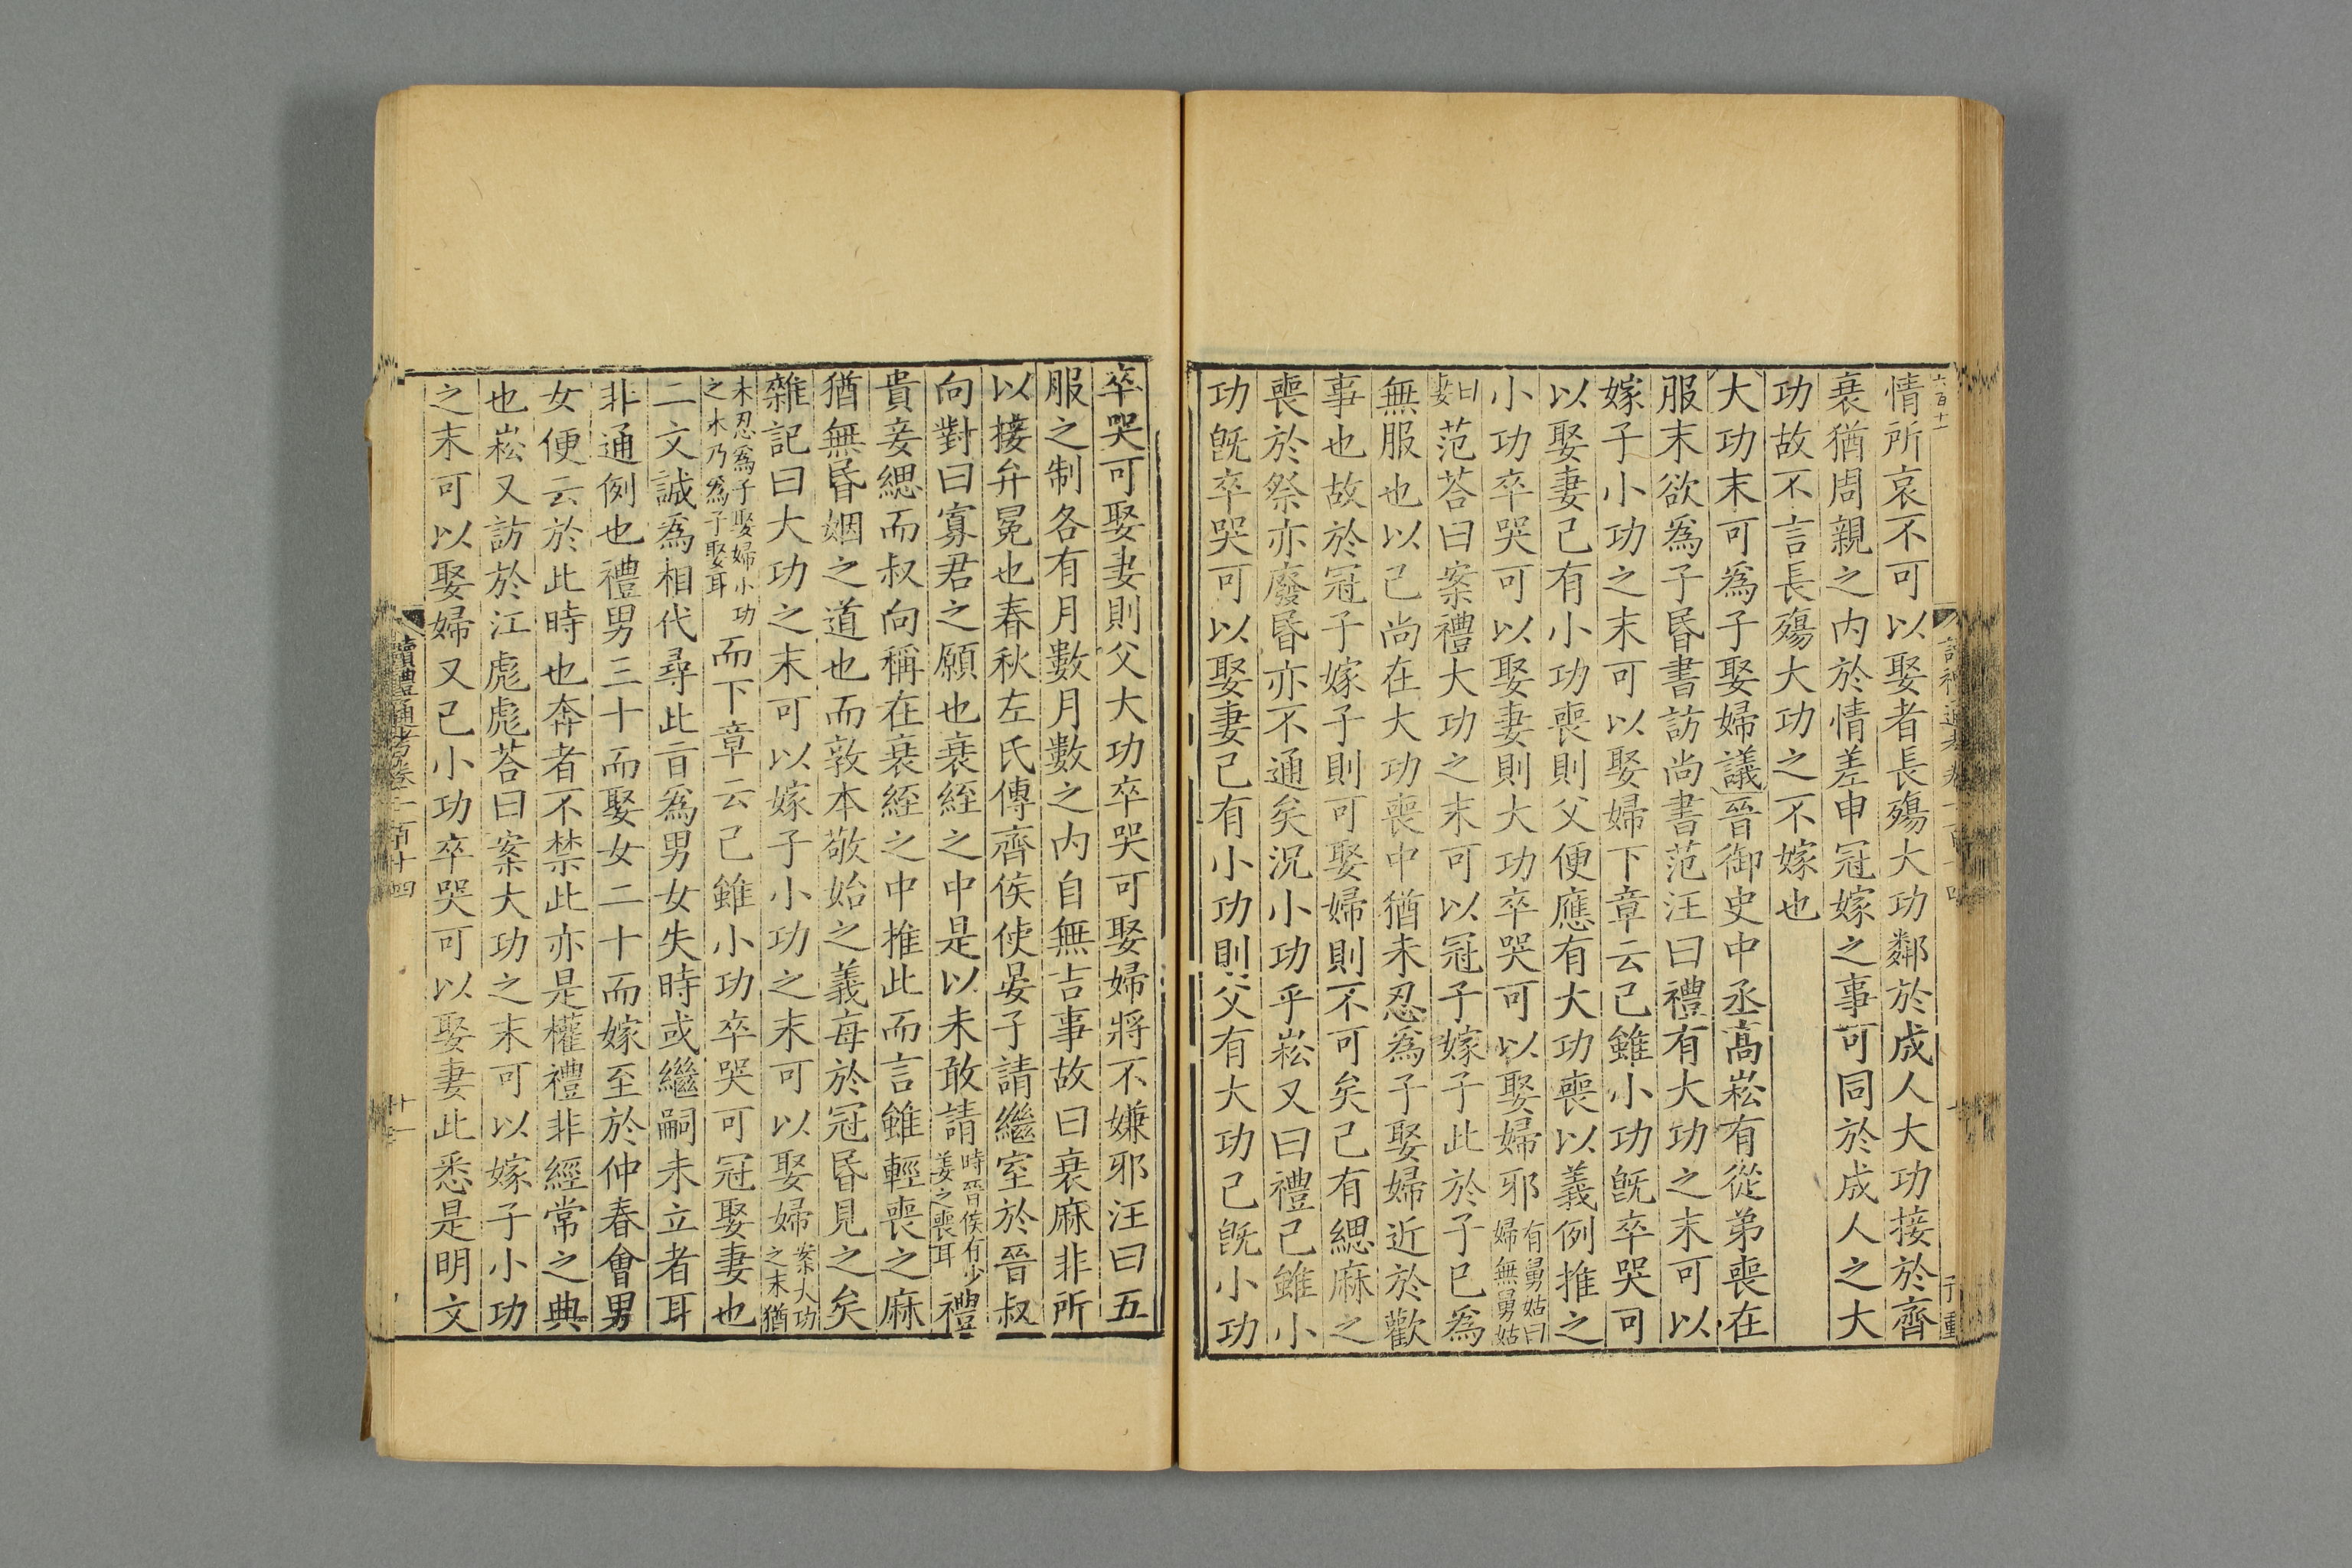 六百十一
情所哀不可以娶者長殤大功鄰於成人大功接於齊
衰猶周親之内於情差申冠嫁之事可同於成人之大
功故不言長殤大功之不嫁也
大功末可爲子娶婦議晉御史中丞高崧有從弟喪在
服末欲爲子昏書訪尚書范汪曰禮有大功之末可以
嫁子小功之末可以娶婦下章云己雖小功旣卒哭可
以娶妻己有小功喪則父便應有大功喪以義例推之
小功卒哭可以娶妻則大功卒哭可以娶婦邪有舅姑曰婦無舅姑
曰妻范荅曰案禮大功之末可以冠子嫁子此於子已爲
無服也以己尚在大功喪中猶未忍爲子娶婦近於歡
事也故於冠子嫁子則可娶婦則不可矣己有緦麻之
喪於祭亦廢昏亦不通矣況小功乎崧又曰禮己雖小
功旣卒哭可以娶妻己有小功則父有大功己旣小功
卒哭可娶妻則父大功卒哭可娶婦將不嫌邪汪曰五
服之制各有月數月數之内自無吉事故曰衰麻非所
以接弁冕也春秋左氏傳齊侯使晏子請繼室於晉叔
向對曰寡君之願也衰絰之中是以未敢請時晉侯有少姜之喪耳禮
貴妾緦而叔向稱在衰絰之中推此而言雖輕喪之麻
猶無昏姻之道也而敦本敬始之義每於冠昏見之矣
雜記曰大功之末可以嫁子小功之末可以娶婦案大功之末猶
未忍爲子娶婦小功之末乃爲子娶耳而下章云己雖小功卒哭可冠娶妻也
二文誠爲相代尋此旨爲男女失時或繼嗣未立者耳
非通例也禮男三十而娶女二十而嫁至於仲春會男
女便云於此時也奔者不禁此亦是權禮非經常之典
也崧又訪於江彪彪荅曰案大功之末可以嫁子小功
之末可以娶婦又己小功卒哭可以娶妻此悉是明文
讀禮通考卷一百十四
十一